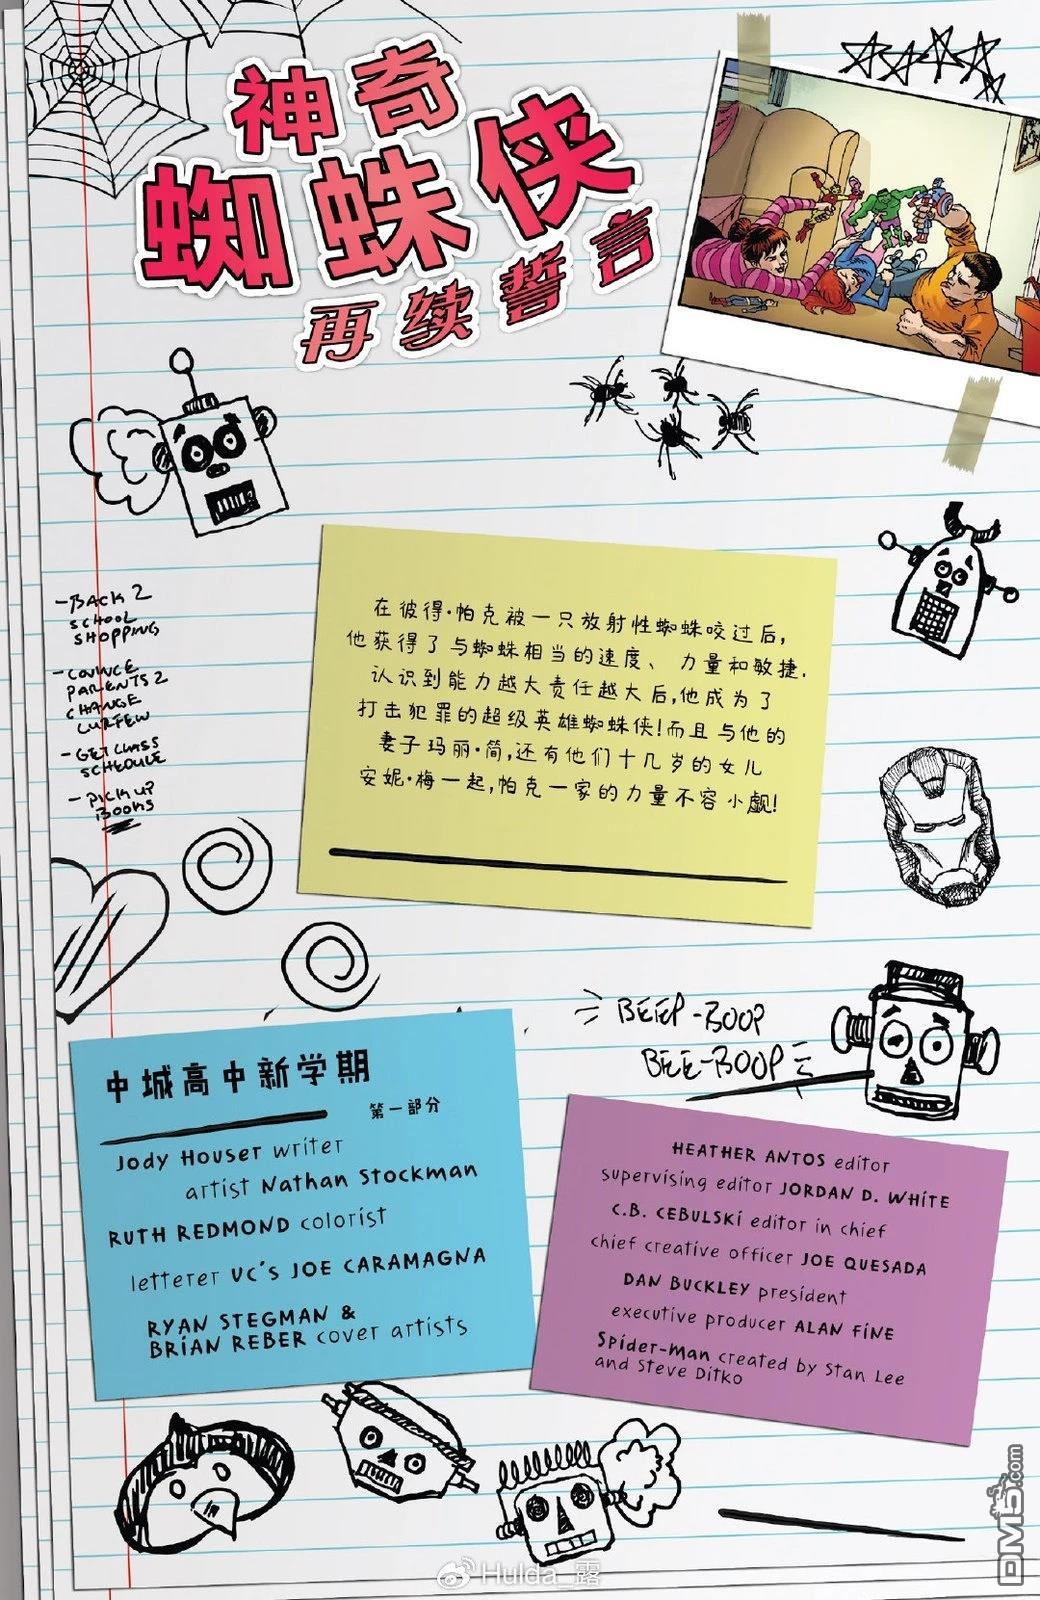 神奇
蜘蛛侠
再续誓言
-BACK 2
SCHOOL
SHOPPING
-COVINCE
PARENTS 2
CHANGE
CURFEW
-GET CLASS
SCHEDULE
-PICK UP
BOOKS
在彼得·帕克被一只放射性蜘蛛咬过后,
他获得了与蜘蛛相当的速度、力量和敏捷.
认识到能力越大责任越大后,他成为了
打击犯罪的超级英雄蜘蛛侠!而且与他的
妻子玛丽·简,还有他们十几岁的女儿
安妮·梅一起,帕克一家的力量不容小觑!
BEEP-BOOP
BEE-BOOP
中城高中新学期
第一部分
Jody Houser writer
artist Nathan Stockman
RUTH REDMOND colorist
letterer VC's JOE CARAMAGNA
RYAN STEGMAN &
BRIAN REBER cover artists
HEATHER ANTOS editor
supervising editor JORDAN D. WHITE
C.B. CEBULSKI editor in chief
chief creative officer JOE QUESADA
DAN BUCKLEY president
executive producer ALAN FINE
Spider-Man created by Stan Lee
and Steve Ditko
DM5.com
Hulda_露